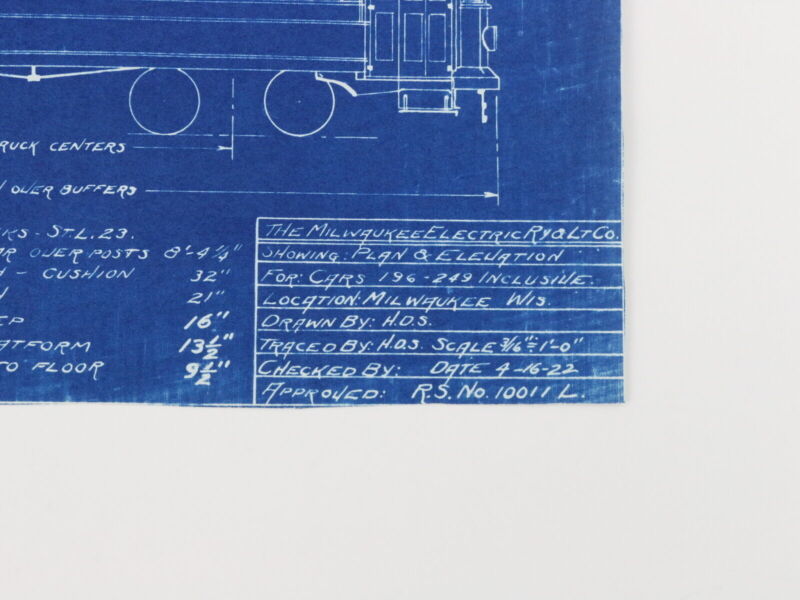 TRUCK CENTERS
OVER BUFFERS
ST.L. 23.
OVER POSTS 8'-4 1/4"
- CUSHION 32"
21"
16"
PLATFORM 13 1/2"
TO FLOOR 9 1/2"
THE MILWAUKEE ELECTRIC RY & LT CO.
SHOWING: PLAN & ELEVATION
FOR: CARS 196-249 INCLUSIVE.
LOCATION: MILWAUKEE WIS.
DRAWN BY: H.D.S.
TRACED BY: H.D.S. SCALE 3/16" = 1'-0"
CHECKED BY: DATE 4-16-22
APPROVED: R.S. NO. 10011 L.